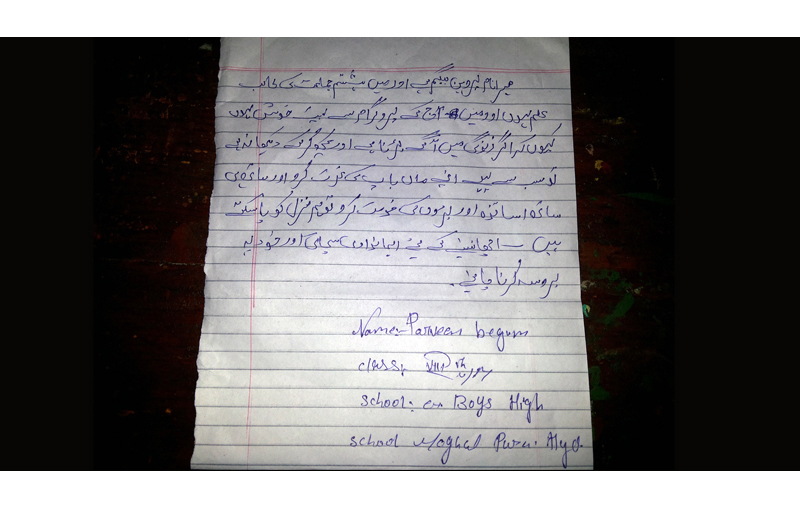 میرا نام پروین بیگم ہے اور میں ہشتم جماعت کی طالب
علم ہوں اور میں آج کی پروگرام سے بہت خوش ہوں
کیوں کہ اگر زندگی میں آگے بڑنا ہے اور کچھ کرکے دیکھانا ہے
تو سب سے پہلے اپنے ماں باپ کی عزت کرو اور ساتھ ہی
ساتھ اساتذہ اور بڑوں کی خدمت کرو تو ہم منزل کو پاسکتے
ہیں ۔ اچھا بننے کے لئے ایمانداری سچائی اور خود پہ
بروسہ کرنا چاہئے ۔
Name:- Parveen begum
class:- VIII th
School:- Boys High
school Moghal Pura. Hyd.